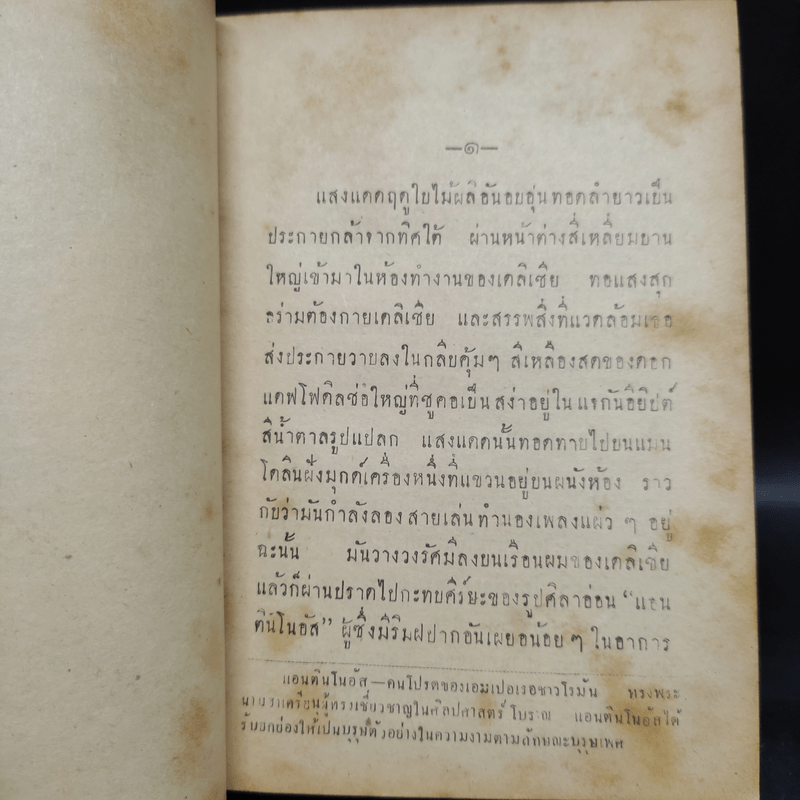 —๑—
แสงแดดฤดูใบไม้ผลิอันอบอุ่นทอดลำยาวเป็น
ประกายกล้าจากทิศใต้ ผ่านหน้าต่างสี่เหลี่ยมบาน
ใหญ่เข้ามาในห้องทำงานของเดลิเซีย ทอแสงสุก
อร่ามต้องกายเดลิเซีย และสรรพสิ่งที่แวดล้อมเธอ
ส่งประกายวาบลงในกลีบคุ้มๆ สีเหลืองสดของดอก
แดฟโฟดิลช่อใหญ่ที่ชูคอเป็นสง่าอยู่ในแจกันอิยิปต์
สีน้ำตาลรูปแปลก แสงแดดนั้นทอดทาบไปบนแมน
โดลินฝังมุกด์เครื่องหนึ่งที่แขวนอยู่บนผนังห้อง ราว
กับว่ามันกำลังลองสายเล่นทำนองเพลงแผ่ว ๆ อยู่
ฉะนั้น มันวางวงรัศมีลงบนเรือนผมของเดลิเซีย
แล้วก็ผ่านปราดไปกะทบศีร์ษะของรูปศิลาอ่อน “แอน
ตินโนอัส” ผู้ซึ่งมีริมฝีปากอันเผยอน้อยๆ ในอาการ
แอนตินโนอัส—คนโปรดของเอมเปอเรอชาวโรมัน ทรงพระ
ผู้ทรงเชี่ยวชาญในศิลปศาสตร์โบราณ แอนตินโนอัสได้
รับยกย่องให้เป็นบุรุษตัวอย่างในความงามตามลักษณะบุรุษเพศ